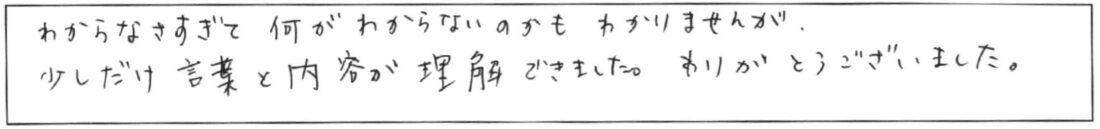 わからなさすぎて 何がわからないのかも わかりませんが、
少しだけ 言葉と内容が理解できました。ありがとうございました。